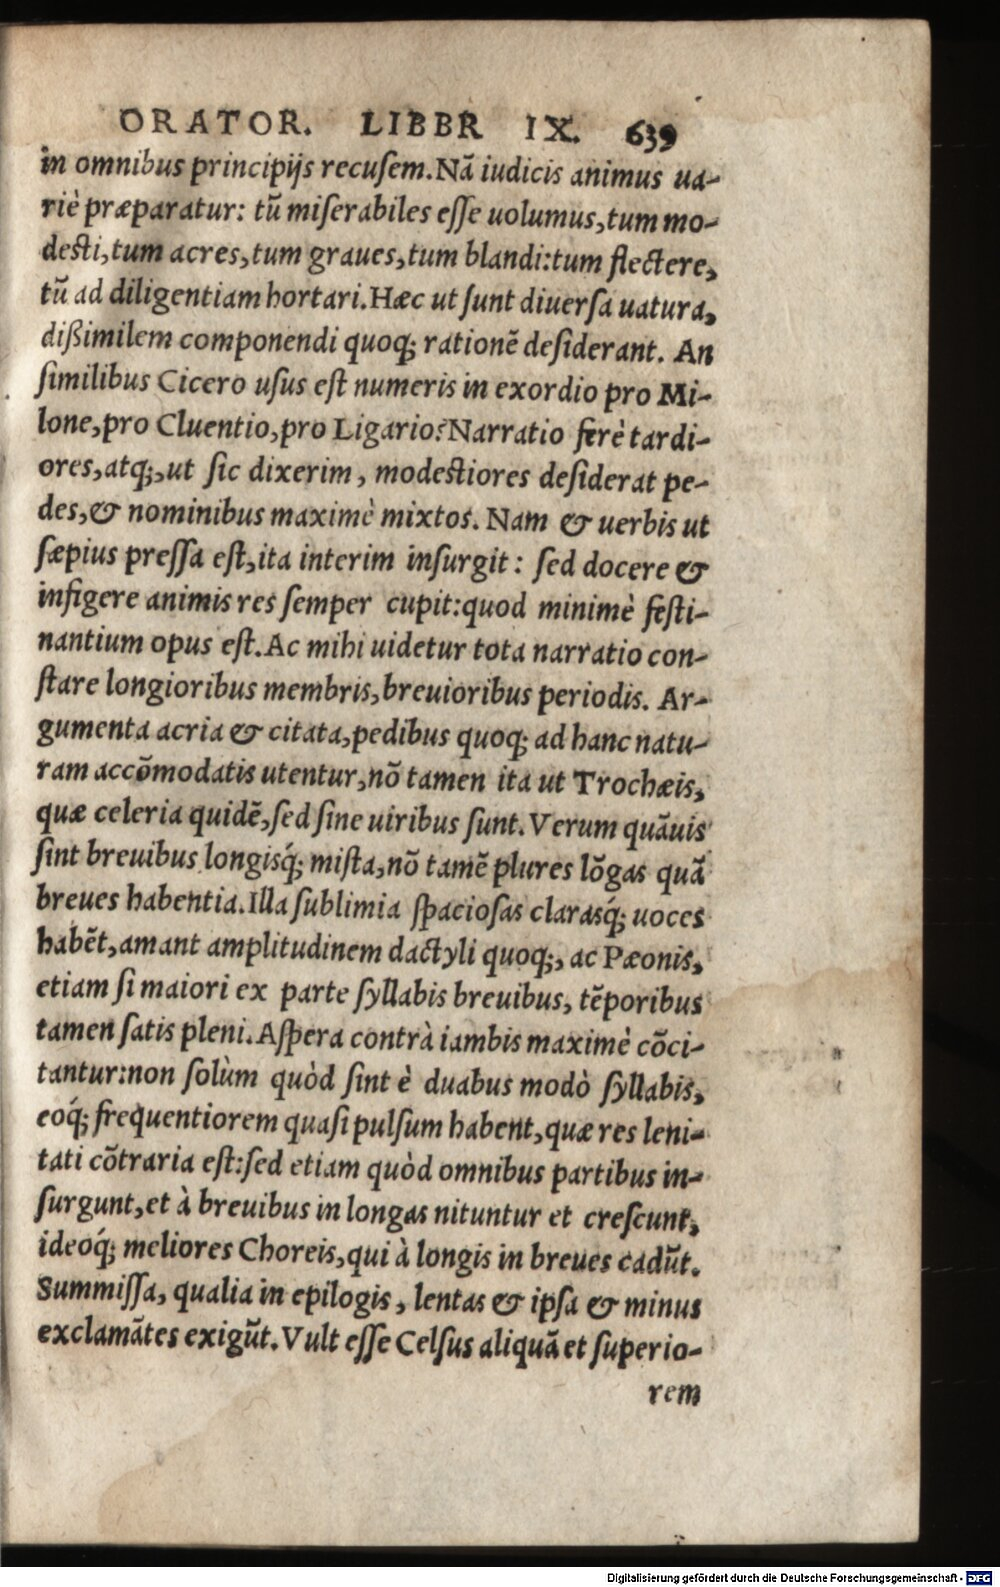 ORATOR. LIBBR IX. 639
in omnibus principijs recuſem. Nā iudicis animus ua-
riè præparatur: tū miſerabiles eſſe uolumus, tum mo-
deſti, tum acres, tum graues, tum blandi: tum flectere,
tū ad diligentiam hortari. Hæc ut ſunt diuerſa uatura,
dißimilem componendi quoq; rationē deſiderant. An
ſimilibus Cicero uſus eſt numeris in exordio pro Mi-
lone, pro Cluentio, pro Ligario? Narratio ferè tardi-
ores, atq;, ut ſic dixerim, modeſtiores deſiderat pe-
des, & nominibus maximè mixtos. Nam & uerbis ut
ſæpius preſſa eſt, ita interim inſurgit: ſed docere &
infigere animis res ſemper cupit: quod minimè feſti-
nantium opus eſt. Ac mihi uidetur tota narratio con-
ſtare longioribus membris, breuioribus periodis. Ar-
gumenta acria & citata, pedibus quoq; ad hanc natu-
ram accōmodatis utentur, nō tamen ita ut Trochæis,
quæ celeria quidē, ſed ſine uiribus ſunt. Verum quāuis
ſint breuibus longisq́; miſta, nō tamē plures lōgas quā
breues habentia. Illa ſublimia ſpacioſas clarasq́; uoces
habēt, amant amplitudinem dactyli quoq;, ac Pæonis,
etiam ſi maiori ex parte ſyllabis breuibus, tēporibus
tamen ſatis pleni. Aſpera contrà iambis maximè cōci-
tantur: non ſolùm quòd ſint è duabus modò ſyllabis,
eoq́; frequentiorem quaſi pulſum habent, quæ res leni-
tati cōtraria eſt: ſed etiam quòd omnibus partibus in-
ſurgunt, et à breuibus in longas nituntur et creſcunt,
ideoq́; meliores Choreis, qui à longis in breues cadūt.
Summiſſa, qualia in epilogis, lentas & ipſa & minus
exclamātes exigūt. Vult eſſe Celſus aliquā et ſuperio-
rem
Digitalisierung gefördert durch die Deutsche Forschungsgemeinschaft - DFG